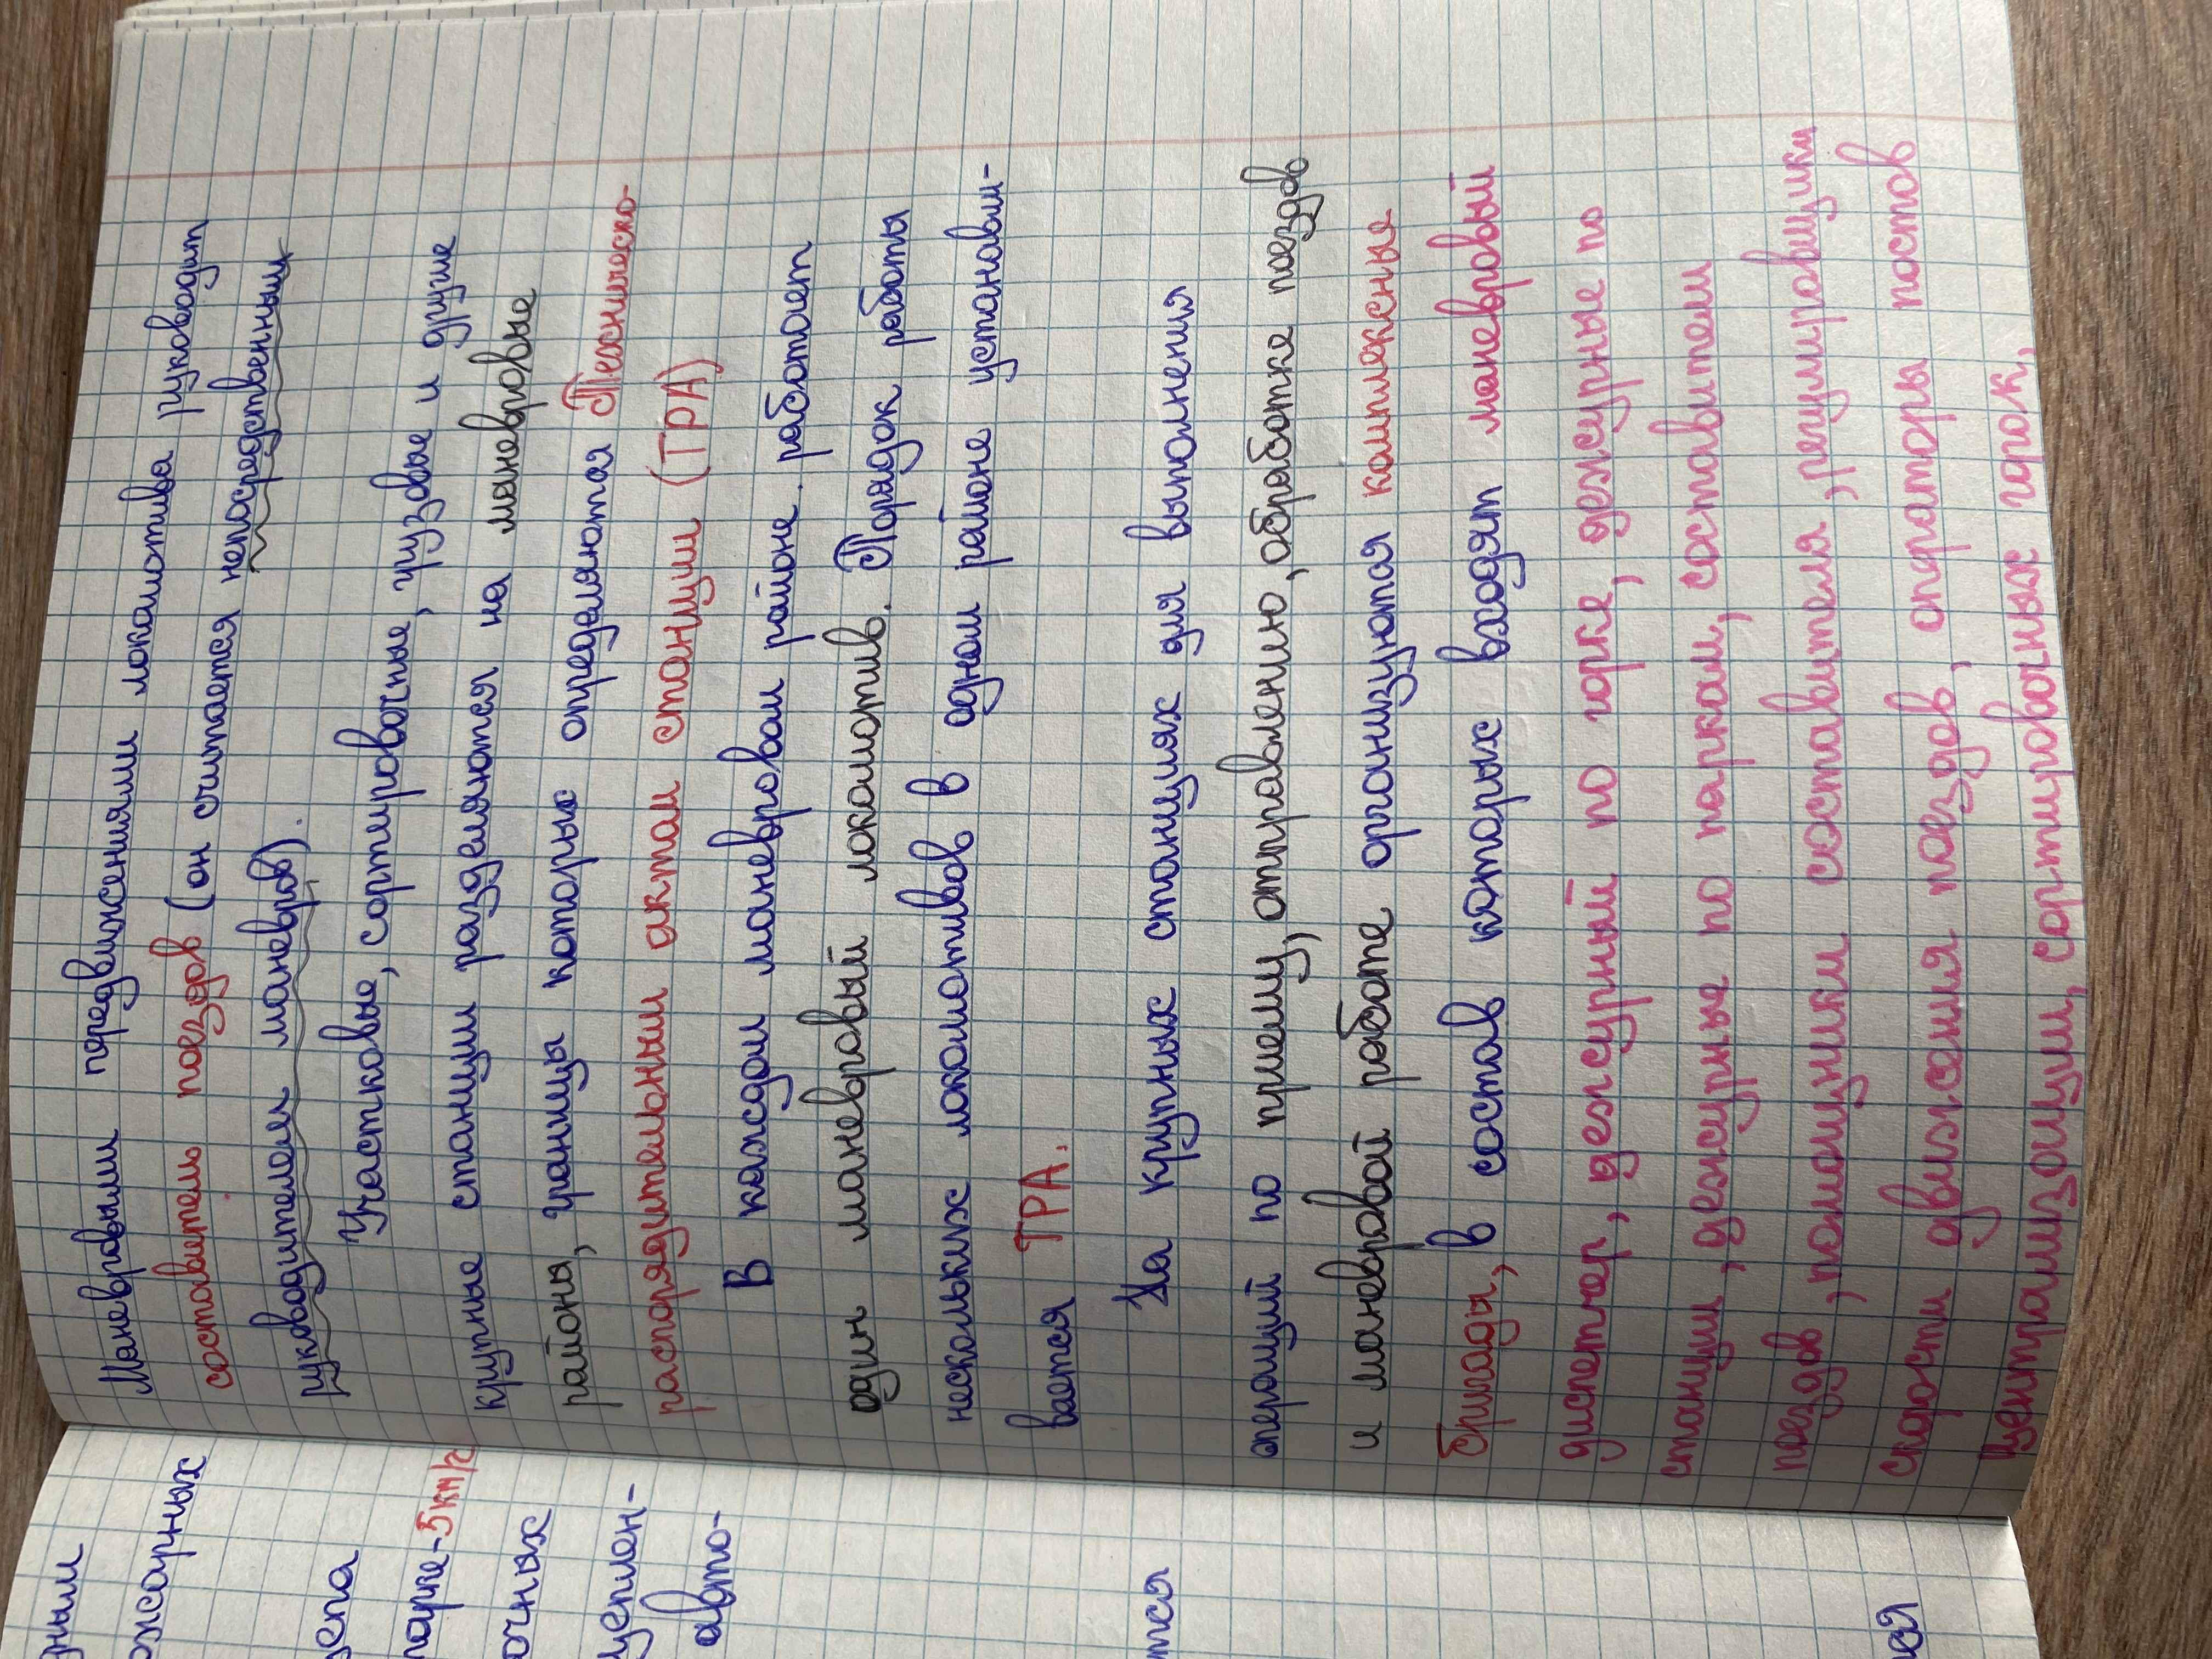 Маневровыми передвижениями локомотива руководит
составитель поездов (он считается непосредственным
руководителем маневров).
Участковые, сортировочные, грузовые и другие
крупные станции разделяются на маневровые
районы, границы которых определяются Техническо-
распорядительным актом станции (ТРА)
В каждом маневровом районе работает
один маневровый локомотив. Порядок работы
нескольких локомотивов в одном районе устанавли-
вается ТРА.
На крупных станциях для выполнения
операций по приему, отправлению, обработке поездов
и маневровой работе организуются комплексные
бригады, в состав которых входят маневровый
диспетчер, дежурный по горке, дежурные по
станции, дежурные по паркам, составители
поездов, помощники составителя, регулировщики
скорости движения поездов, операторы постов
централизации, сортировочных горок,
дным
ожарных
цепа
парке-5км/ч
очных
цеплен-
авто-
тся
ая